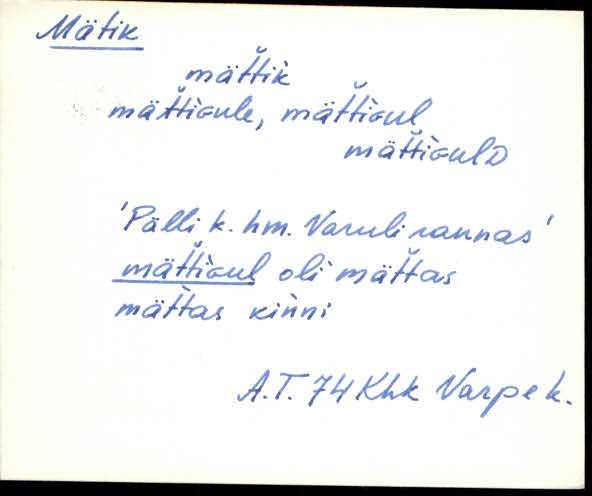 Mätik
mät̆t̀ik
mät̆t̀iGule, mät̆t̀iGul
mät̆t̀iGulD
'Pälli k. hm. Varuli rannas'
mät̆t̀iGul oli mät̆t̀as
mät̆t̀as kin̆ni
A.T. 74 Khk Varpe k.